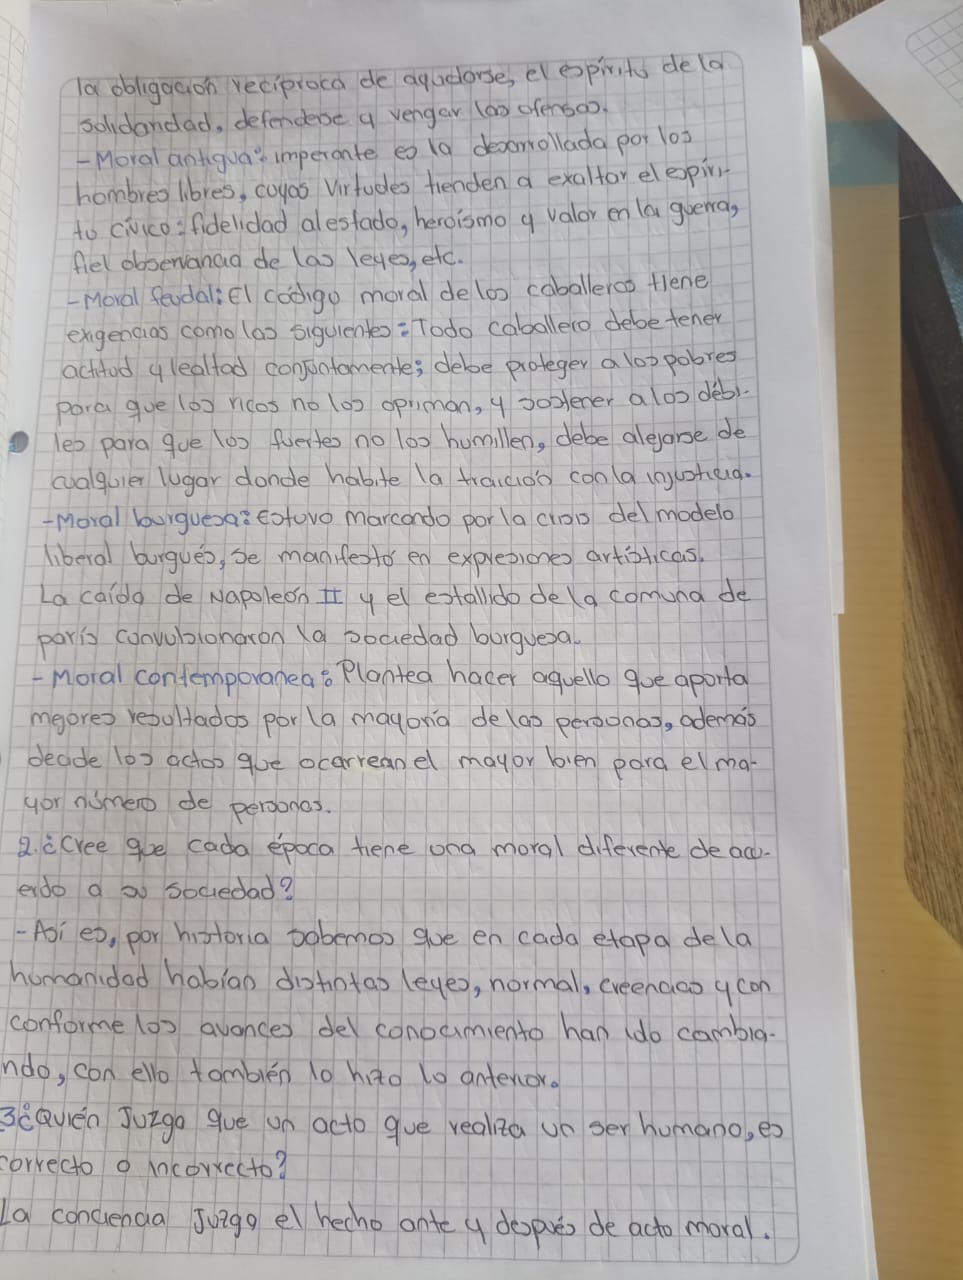 la obligación recíproca de ayudarse, el espíritu de la
solidaridad, defenderse y vengar las ofensas.
- Moral antigua: imperante es la desarrollada por los
hombres libres, cuyas virtudes tienden a exaltar el espíri-
tu cívico: fidelidad al estado, heroísmo y valor en la guerra,
fiel observancia de las leyes, etc.
- Moral feudal: El código moral de los caballeros tiene
exigencias como las siguientes: Todo caballero debe tener
actitud y lealtad conjuntamente; debe proteger a los pobres
para que los ricos no los opriman, y sostener a los débi-
les para que los fuertes no los humillen, debe alejarse de
cualquier lugar donde habite la traición con la injusticia.
- Moral burguesa: Estuvo marcando por la crisis del modelo
liberal burgués, se manifestó en expresiones artísticas.
La caída de Napoleón II y el estallido de la comuna de
parís convulsionaron la sociedad burguesa.
- Moral contemporanea: Plantea hacer aquello que aporta
mejores resultados por la mayoría de las personas, además
decide los actos que acarrean el mayor bien para el ma-
yor número de personas.
2. ¿Cree que cada época tiene una moral diferente de acu-
erdo a su sociedad?
- Así es, por historia sabemos que en cada etapa de la
humanidad habían distintas leyes, normal, creencias y con
conforme los avances del conocimiento han ido cambia-
ndo, con ello también lo hizo lo anterior.
3 ¿Quién Juzga que un acto que realiza un ser humano, es
correcto o incorrecto?
La conciencia Juzga el hecho ante y después de acto moral.